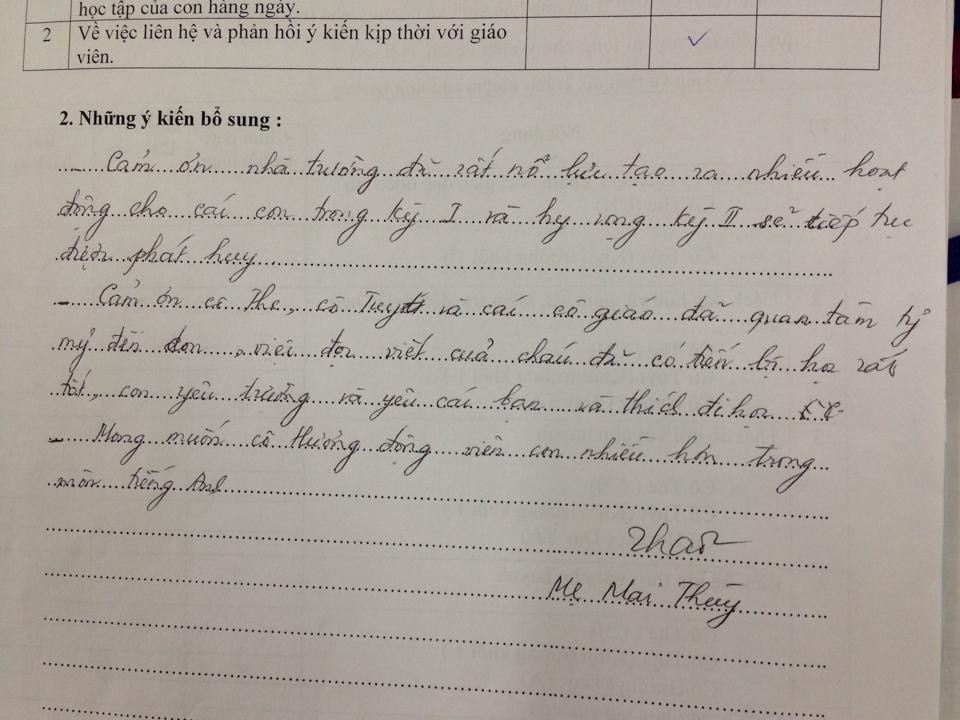 học tập của con hàng ngày.
2 Về việc liên hệ và phản hồi ý kiến kịp thời với giáo
viên.
2. Những ý kiến bổ sung :
- Cảm ơn nhà trường đã rất nỗ lực tạo ra nhiều hoạt
động cho các con trong kỳ I và hy vọng kỳ II sẽ tiếp tục
được phát huy
- Cảm ơn cô The, cô Tuyết và các cô giáo đã quan tâm tỷ
mỷ đến con, việc đọc viết của cháu đã có tiến bộ học rất
tốt, con yêu trường và yêu các bạn và thích đi học
- Mong muốn cô Hương động viên con nhiều hơn trong
môn tiếng Anh
Mẹ Mai Thùy